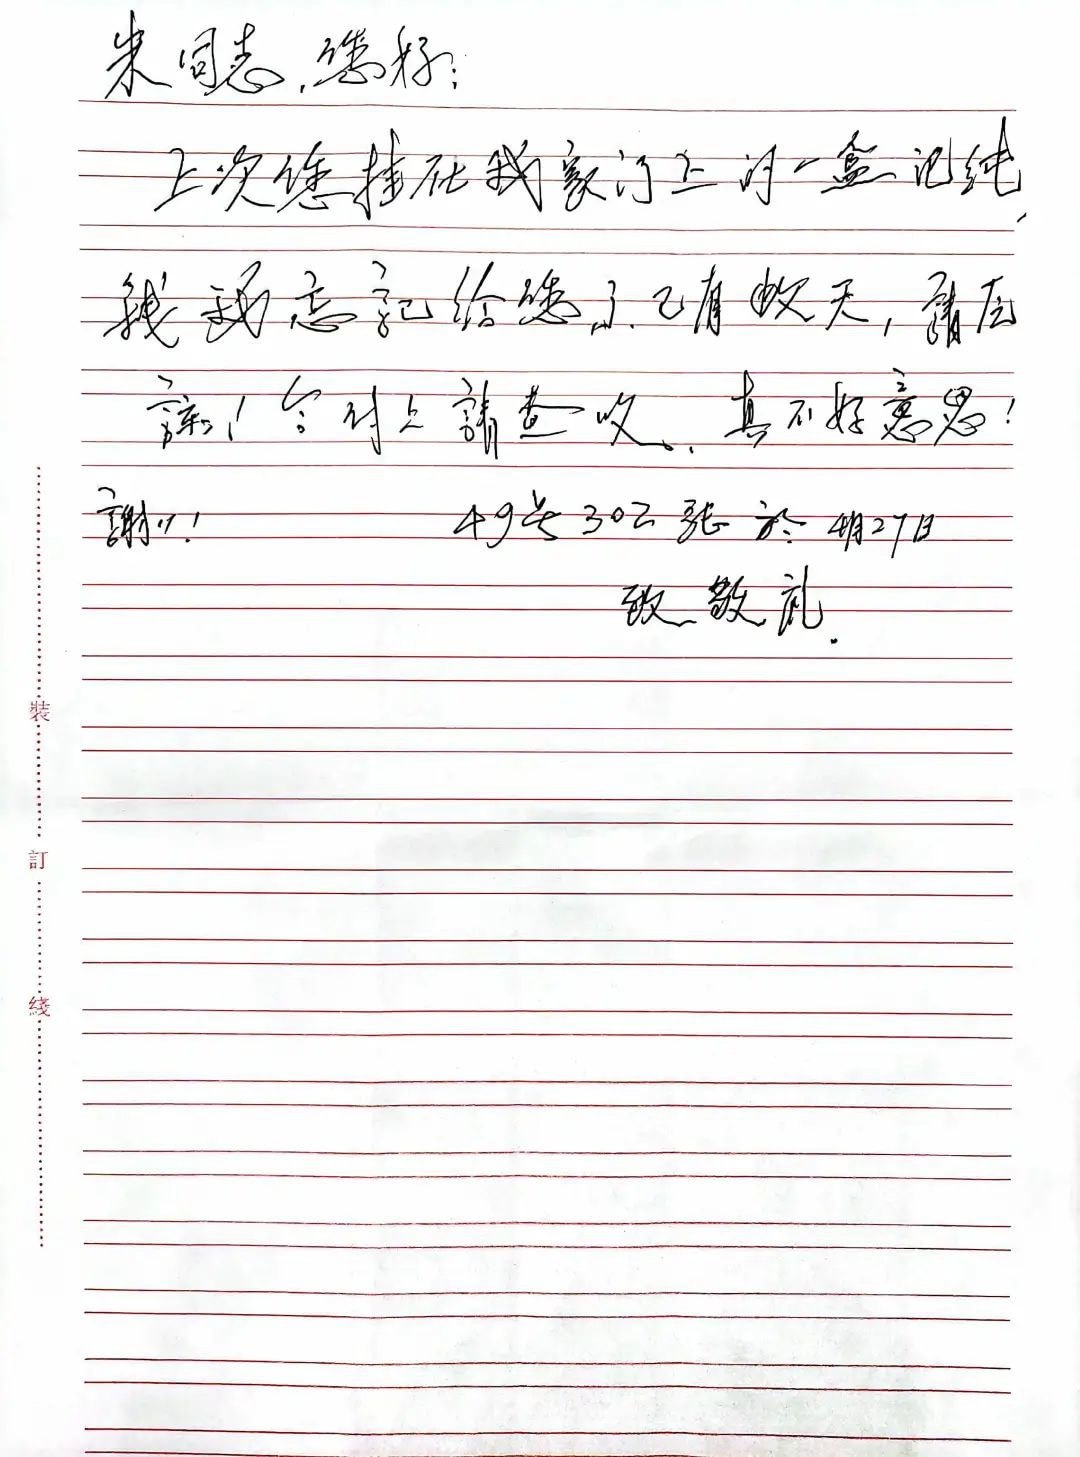 朱同志,您好:
上次您挂在我家门上的一盒记纯,
钱我忘記给您了.已有收天,請原
諒!今付上請查收.真不好意思!
謝〃!
49号302张於4月27日
致敬礼.
裝訂綫